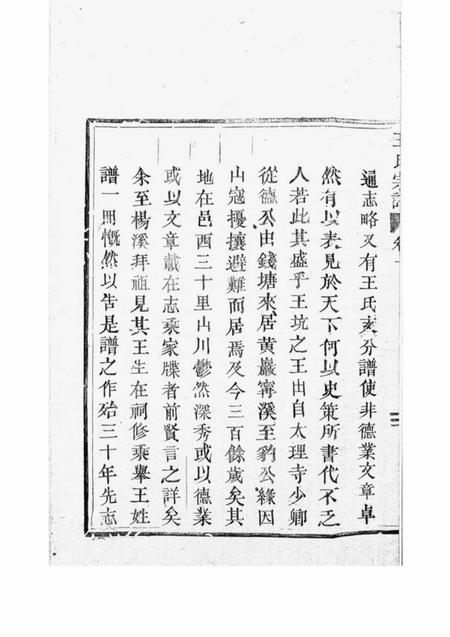 王氏宗譜 卷一
通志略又有王氏支分譜使非德業文章卓
然有以表見於天下何以史策所書代不乏
人若此其盛乎王坑之王由自大理寺少卿
從德公由錢塘來居黃巖寧溪至豹公緣因
山寇擾攘避難而居焉及今三百餘歲矣其
地在邑西三十里山川鬱然深秀或以德業
或以文章載在志乘家牒者前賢言之詳矣
余至楊溪拜祖見其王生在祠修乘舉王姓
譜一冊慨然以告是譜之作殆三十年先志